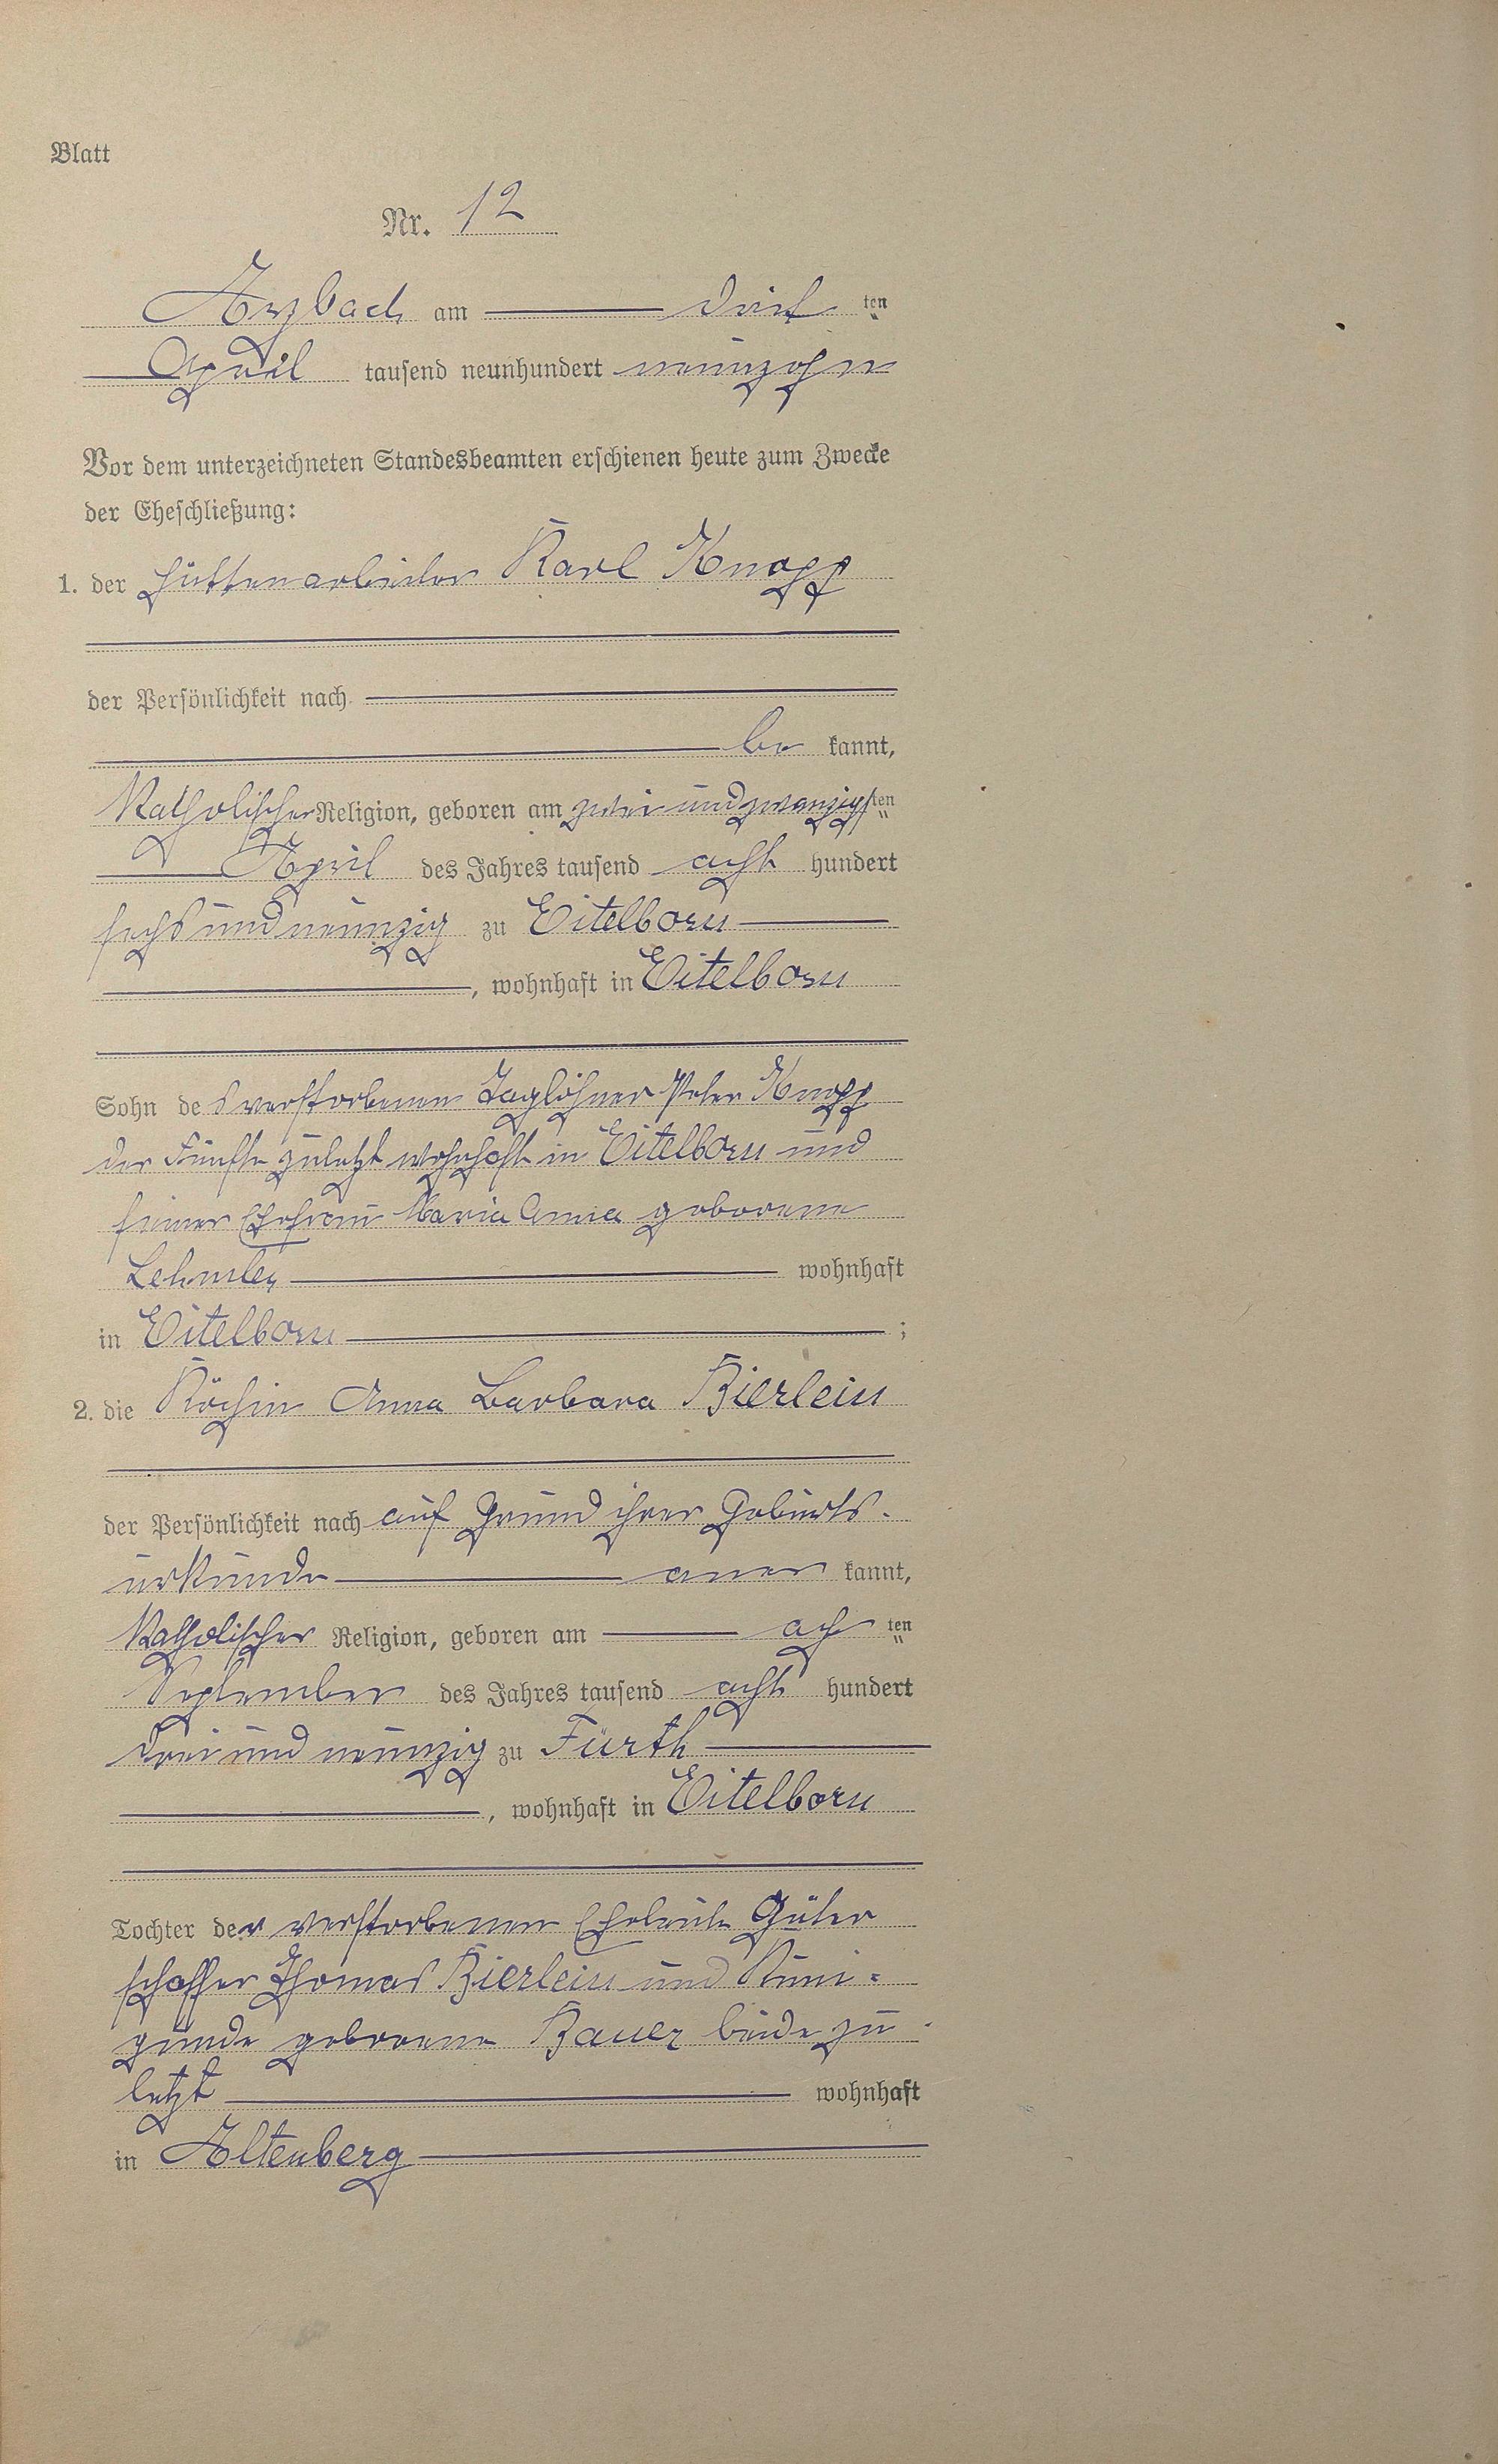 Blatt
Nr. 12
Arzbach am drit ten
April tausend neunhundert neunzehn
Vor dem unterzeichneten Standesbeamten erschienen heute zum Zwecke
der Eheschließung:
1. der Hüttenarbeiter Karl Knopp
der Persönlichkeit nach
be kannt,
Katholischer Religion, geboren am zwei und zwanzigsten
April des Jahres tausend acht hundert
sechs und neunzig zu Eitelborn
, wohnhaft in Eitelborn
Sohn des verstorbenen Taglöhner Peter Knopp
der Fünfte zuletzt wohnhaft in Eitelborn und
seiner Ehefrau Maria Anna geborene
wohnhaft
in Eitelborn ;
2. die Köchin Anna Barbara Bierlein
der Persönlichkeit nach auf Grund ihrer Geburts-
urkunde aner kannt,
Katholischer Religion, geboren am ach ten
September des Jahres tausend acht hundert
drei und neunzig zu Fürth
, wohnhaft in Eitelborn
Tochter der verstorbenen Eheleute Güter
schaffer Thomas Bierlein und Kuni=
gunde geborene Bauer beide zu
letzt wohnhaft
in Altenberg